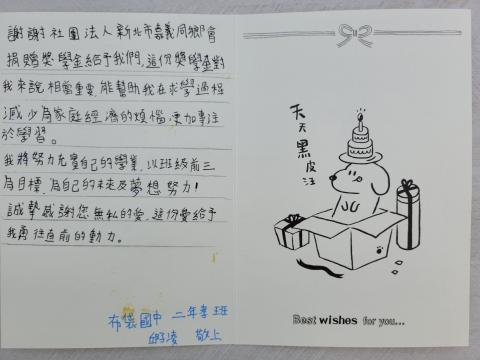 謝謝社團法人新北市嘉義同鄉會
捐贈獎學金給予我們,這份獎學金對
我來說相當重要,能幫助我在求學過程
減少為家庭經濟的煩惱,更加專注
於學習。
我將努力充實自己的學業,以班級前三
為目標,為自己的未來及夢想努力!
誠摯感謝您無私的愛,這份愛給予
我勇往直前的動力。
布袋國中 二年孝班
敬上
天天黑皮汪
Best wishes for you...